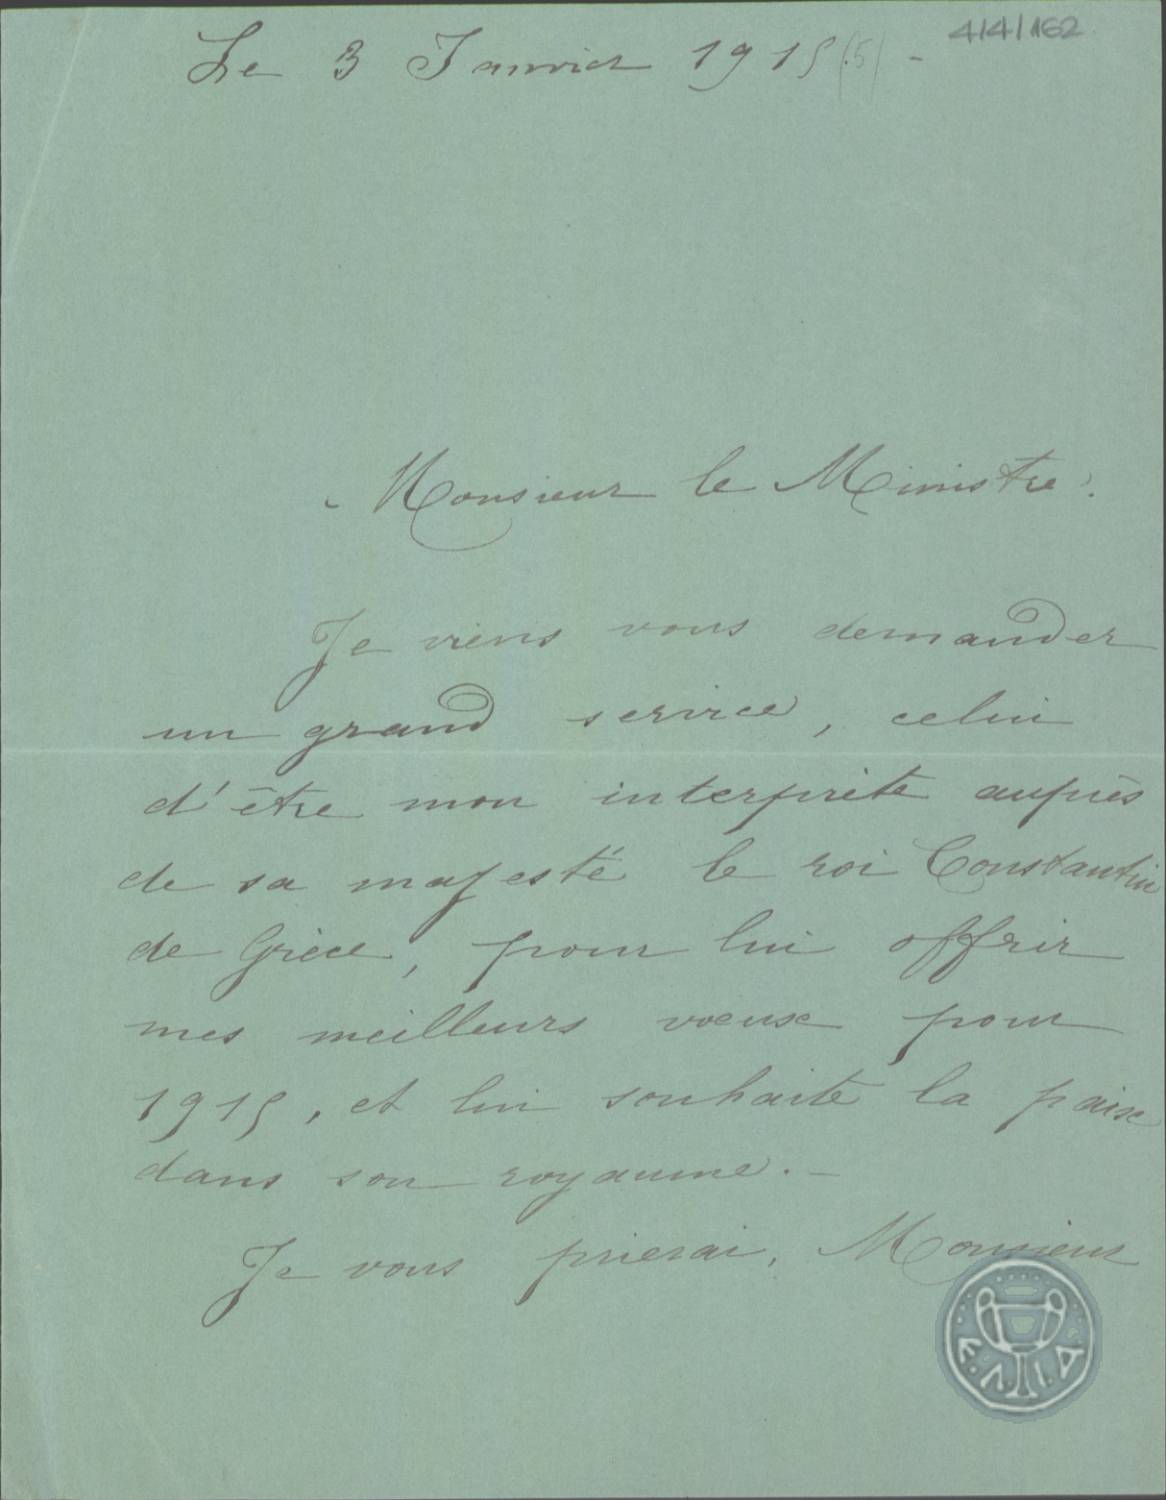 4/4/162
Le 3 Janvier 1915 (.5) -
Monsieur le Ministre.
Je viens vous demander
un grand service, celui
d'être mon interprète auprès
de sa majesté le roi Constantin
de Grèce, pour lui offrir
mes meilleurs voeux pour
1915, et lui souhaite la paix
dans son royaume. -
Je vous prierai, Monsieur
Ε.Λ.Ι.Α